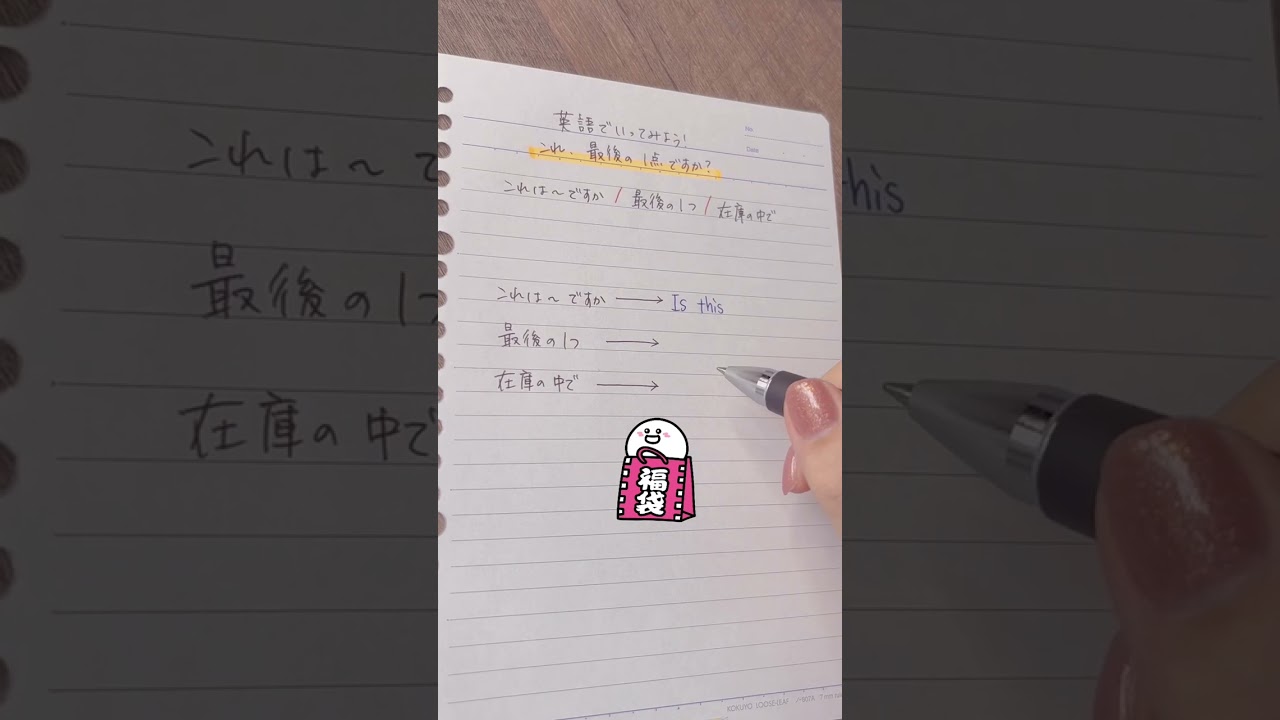 No.
Date
英語でいってみよう!
これ、最後の1点ですか?
これは〜ですか / 最後の1つ / 在庫の中で
これは〜ですか → Is this
最後の1つ →
在庫の中で →
福袋
KOKUYO LOOSE-LEAF
これは〜で
最後の1つ
在庫の中で
this